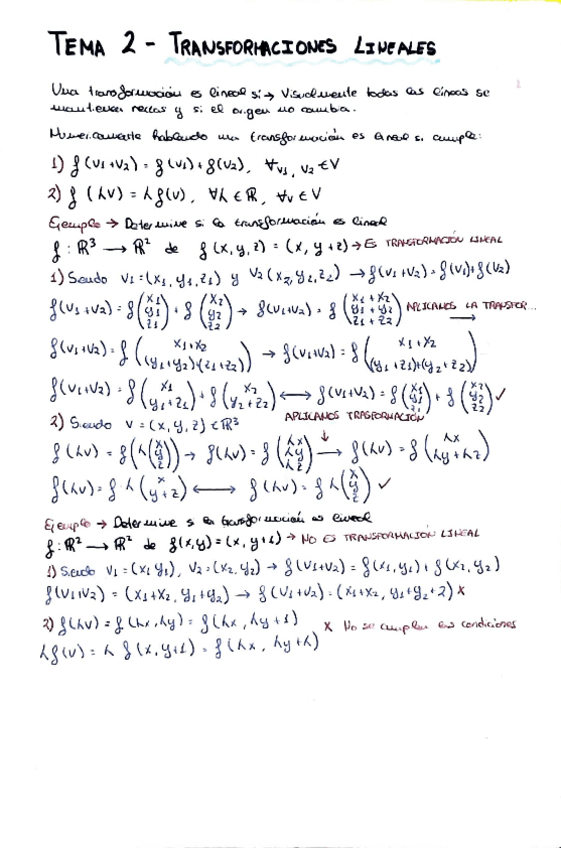 TEMA 2 - TRANSFORMACIONES LINEALES
Una transformación es lineal si → Visualmente todas las líneas se
mantienen rectas y si el origen no cambia.
Numericamente hablando una transformación es lineal si cumple:
1) f(v1+v2) = f(v1)+f(v2), ∀v1, v2 ∈ V
2) f(λv) = λf(v), ∀λ ∈ ℝ, ∀v ∈ V
Ejemplo → Determine si la transformación es lineal
f: ℝ³ → ℝ² de f(x,y,z) = (x, y+z) → ES TRANSFORMACIÓN LINEAL
1) Siendo v1 = (x1, y1, z1) y v2 (x2, y2, z2) → f(v1+v2) = f(v1)+f(v2)
f(v1+v2) = f(x1 y1 z1) + f(x2 y2 z2) → f(v1+v2) = f(x1+x2 y1+y2 z1+z2) APLICAMOS LA TRANSFOR... →
f(v1+v2) = f(x1+x2 (y1+y2)+(z1+z2)) → f(v1+v2) = f(x1+x2 (y1+z1)+(y2+z2))
f(v1+v2) = f(x1 y1+z1) + f(x2 y2+z2) ⟷ f(v1+v2) = f(x1 y1 z1) + f(x2 y2 z2) ✓
2) Siendo v = (x, y, z) ∈ ℝ³ APLICAMOS TRASFORMACIÓN
f(λv) = f(λ(x y z)) → f(λv) = f(λx λy λz) → f(λv) = f(λx λy+λz)
f(λv) = f λ(x y+z) ⟷ f(λv) = f λ(x y z) ✓
Ejemplo → Determine si la transformación es lineal
f: ℝ² → ℝ² de f(x,y) = (x, y+1) → NO ES TRANSFORMACIÓN LINEAL
1) Siendo v1 = (x1 y1), v2 = (x2, y2) → f(v1+v2) = f(x1, y1) + f(x2, y2)
f(v1+v2) = (x1+x2, y1+y2) → f(v1+v2) = (x1+x2, y1+y2+2) x
2) f(λv) = f(λx, λy) = f(λx, λy+1) x No se cumplen las condiciones
λf(v) = λ f(x, y+1) = f(λx, λy+λ)